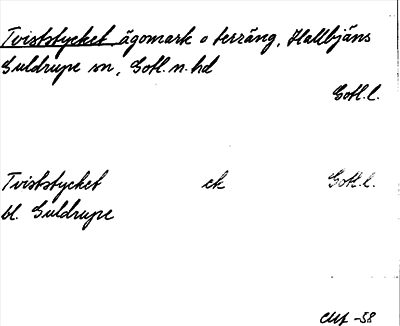 Tviststycket, ägomark o terräng, Hallbjäns
Guldrupe sn, Gotl. n. hd
Gotl. l.
Tviststycket ek Gotl. l.
bl. Guldrupe
-58